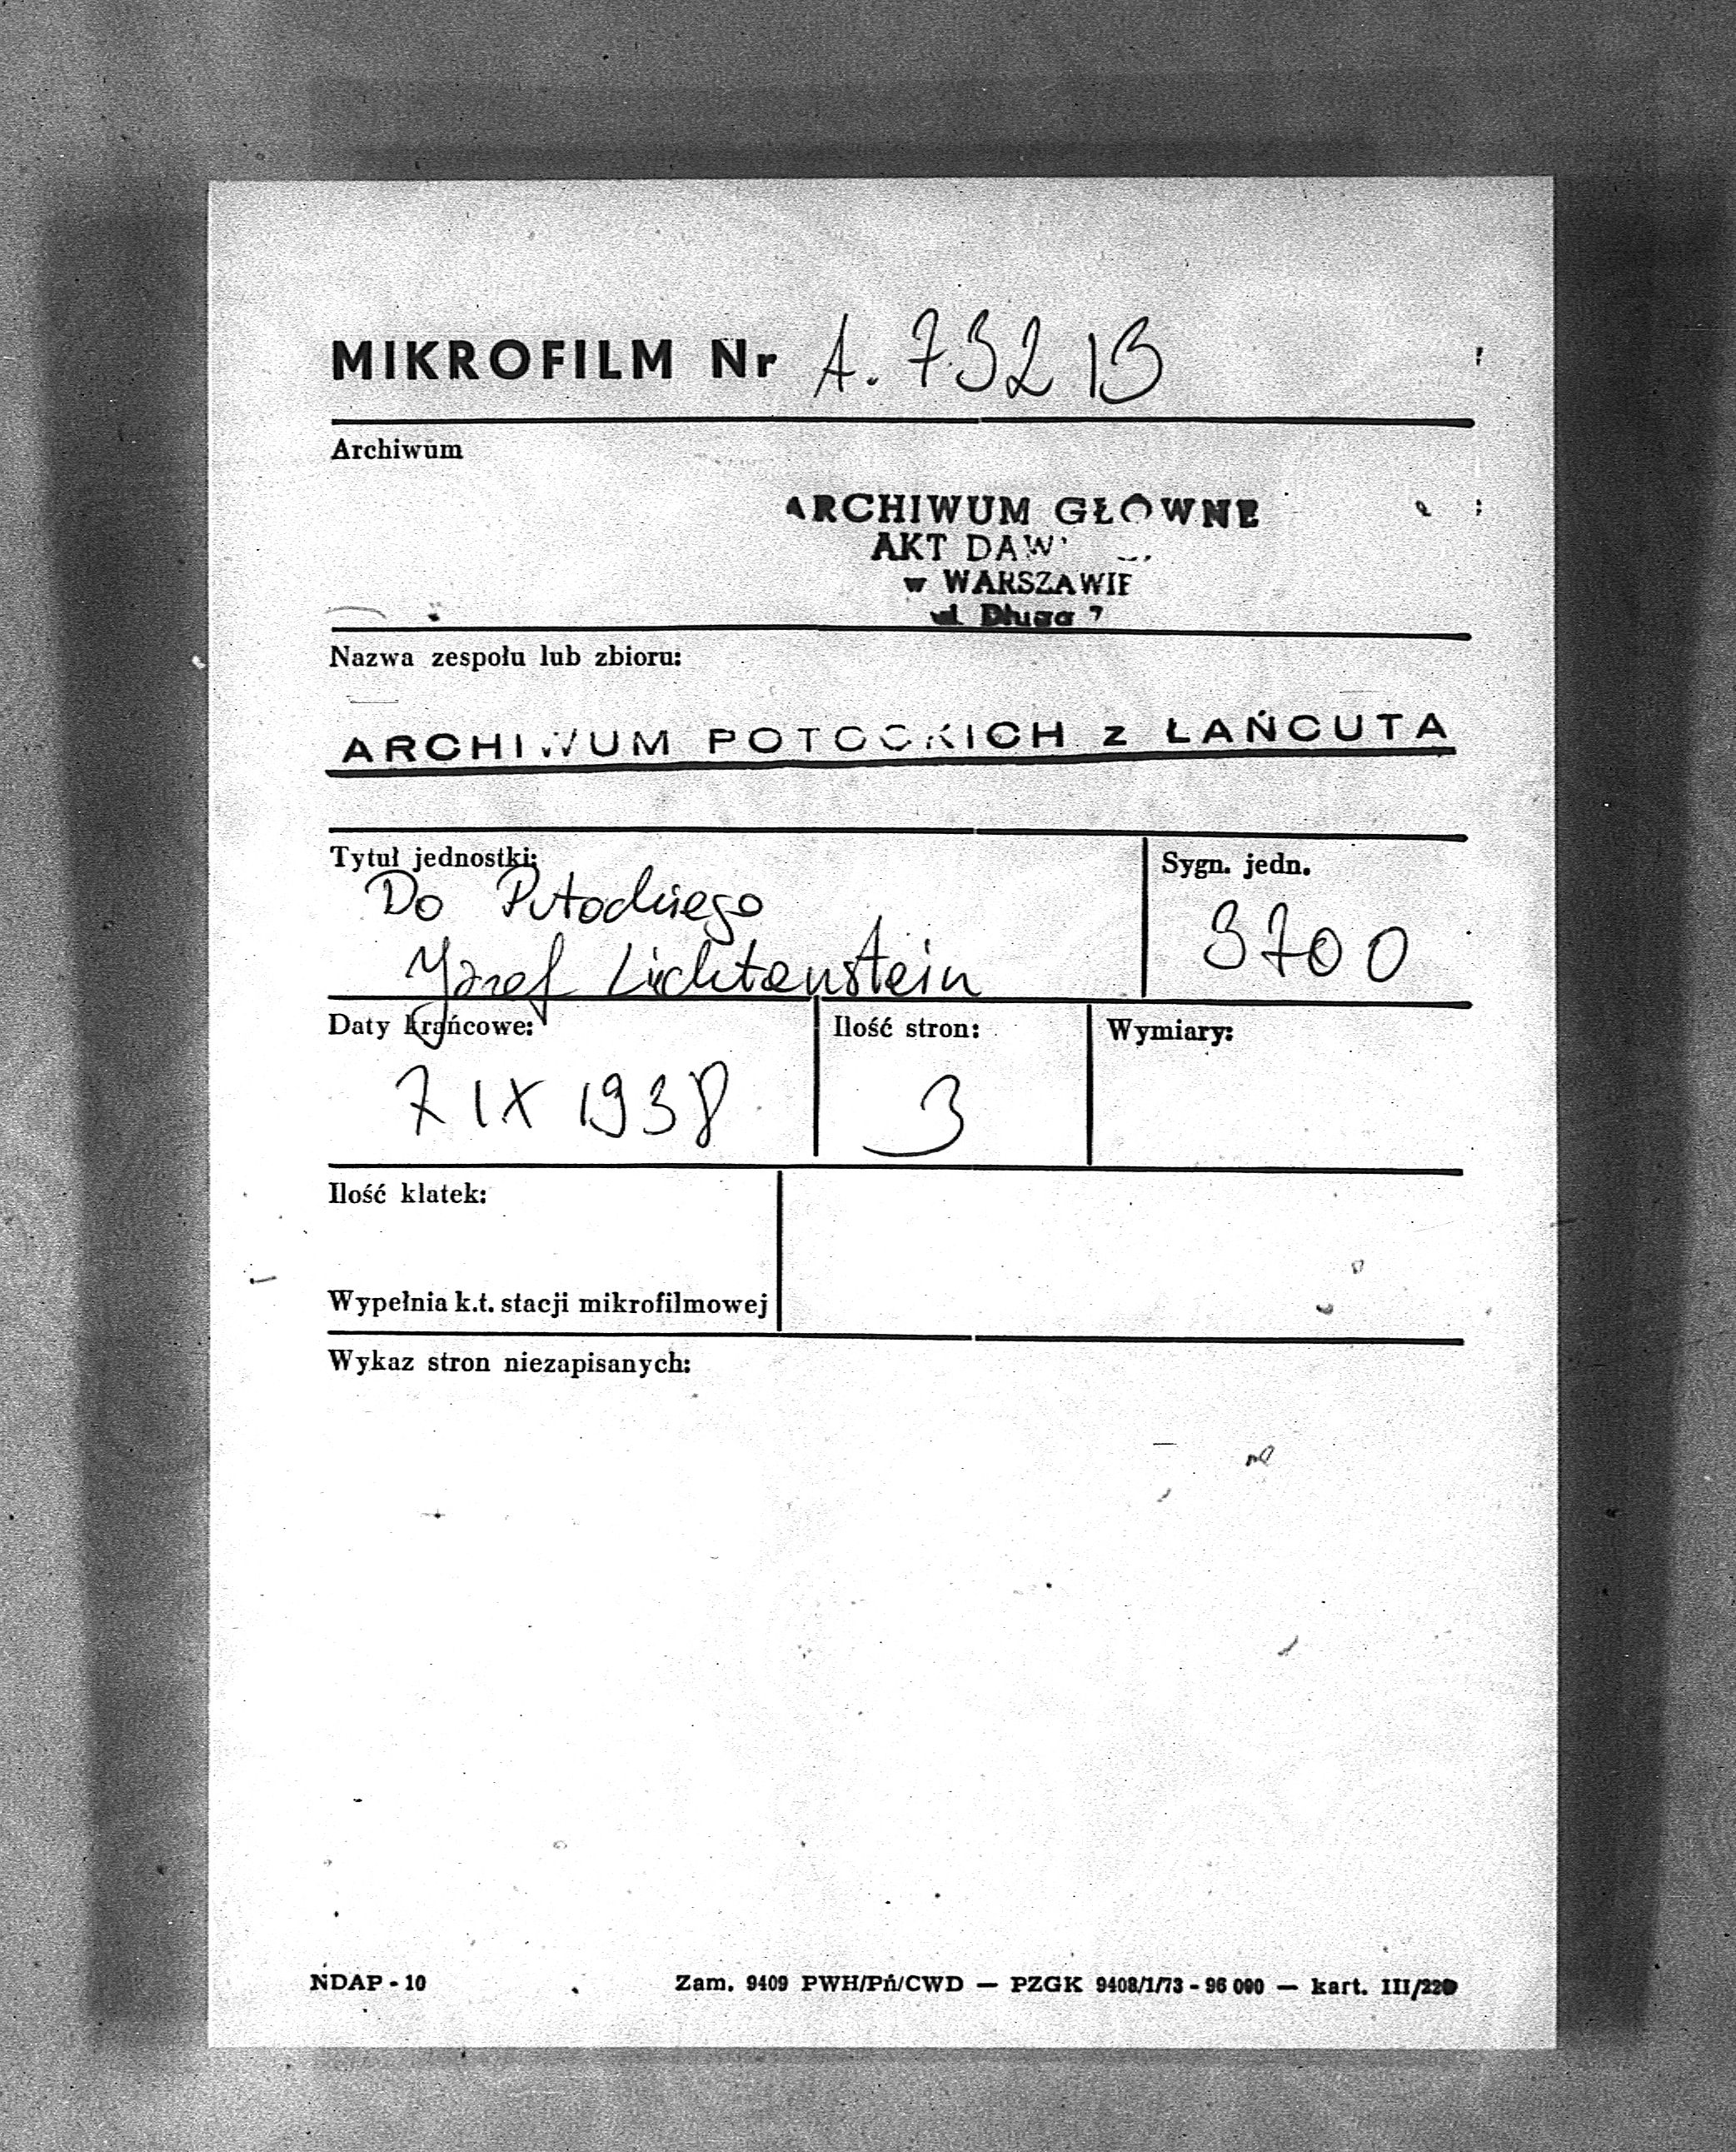 MIKROFILM Nr A. 73213
Archiwum
ARCHIWUM GŁÓWNE
AKT DAW
w WARSZAWIE
ul. Długa 7
Nazwa zespołu lub zbioru:
ARCHIWUM POTOCKICH z ŁAŃCUTA
Tytuł jednostki:
Sygn. jedn.
Do Potockiego
Józef Lichtenstein
3700
Daty krańcowe:
Ilość stron:
Wymiary:
7 IX 1938
3
Ilość klatek:
Wypełnia k.t. stacji mikrofilmowej
Wykaz stron niezapisanych:
NDAP - 10
Zam. 9409 PWH/Pń/CWD — PZGK 9408/1/73 - 96 000 — kart. III/220